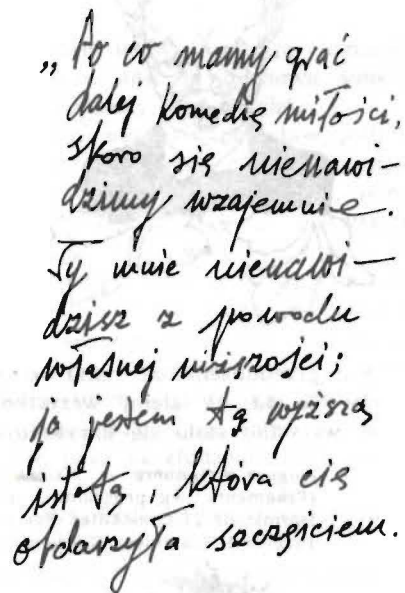 „Po co mamy grać
dalej komedię miłości,
skoro się nienawi-
dzimy wzajemnie.
Ty mnie nienawi-
dzisz z powodu
własnej niższości;
ja jestem tą wyższą
istotą, która cię
obdarzyła szczęściem.